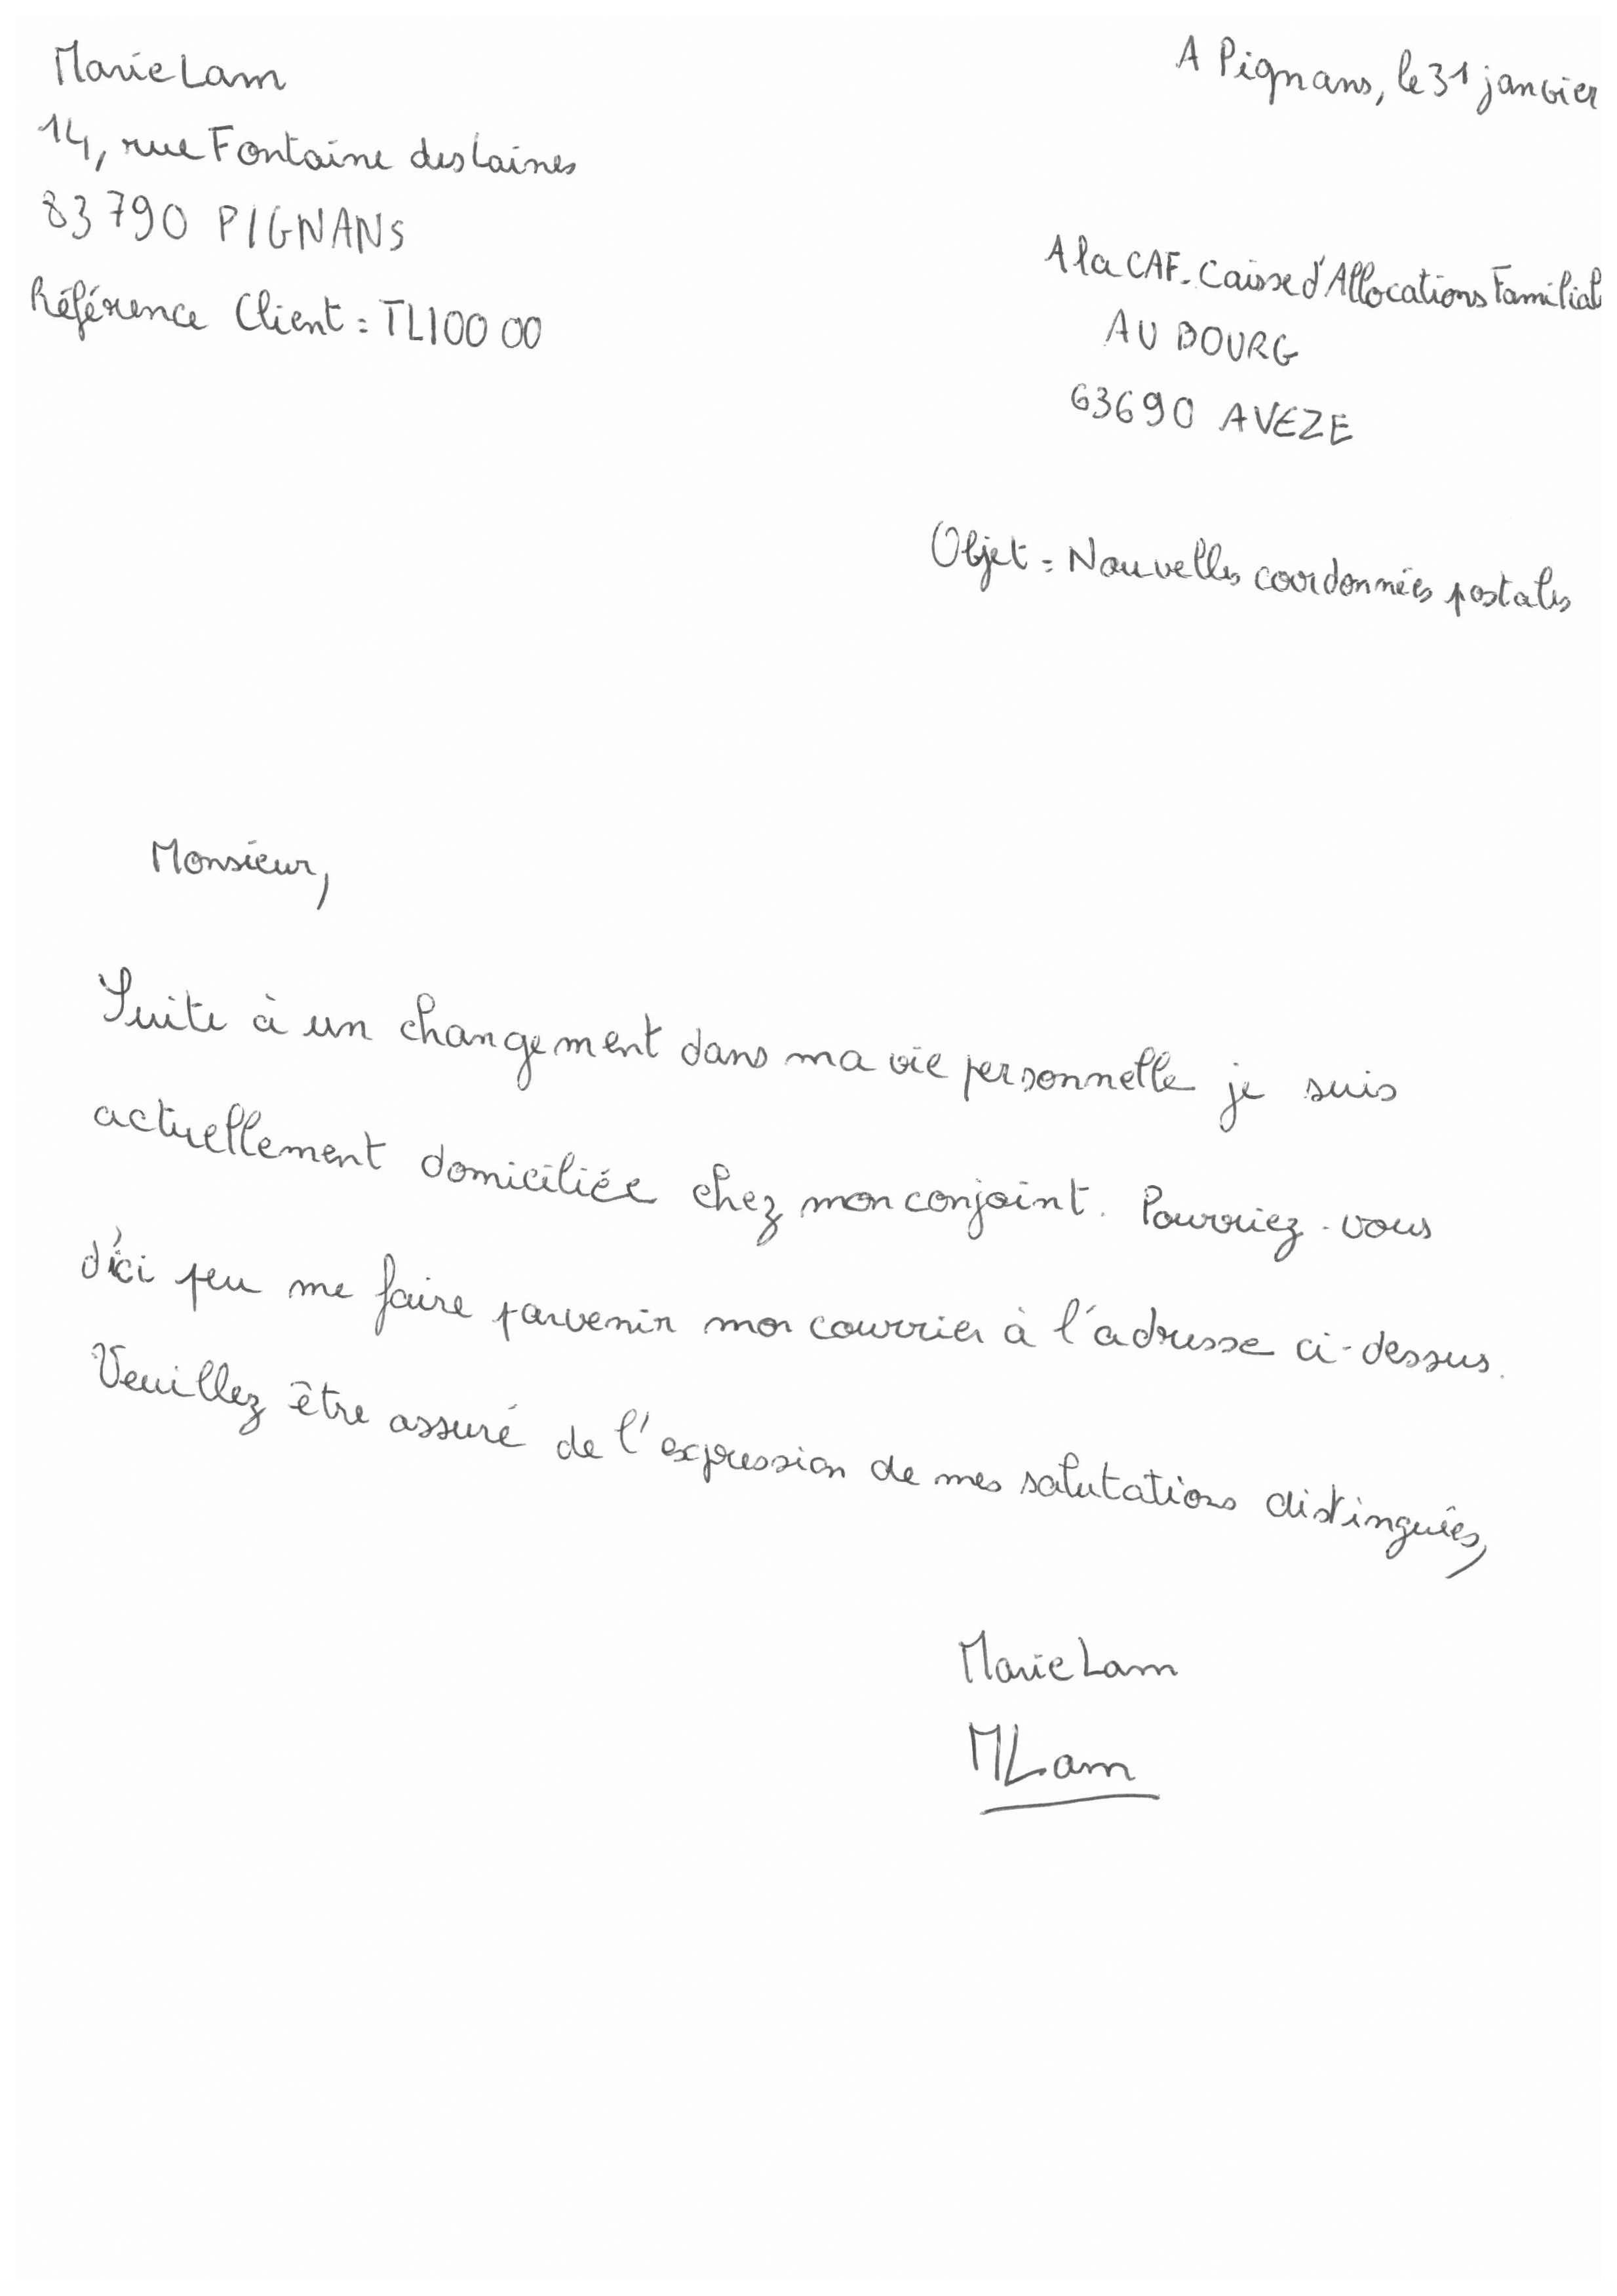 Marie Lam
14, rue Fontaine des Laines
83790 PIGNANS
Référence Client : TLI00 00
A Pignans, le 31 janvier
A la CAF - Caisse d'Allocations Familial
AU BOURG
63690 AVEZE
Objet : Nouvelles coordonnées postales
Monsieur,
Suite à un changement dans ma vie personnelle je suis
actuellement domiciliée chez mon conjoint. Pourriez-vous
d'ici peu me faire parvenir mon courrier à l'adresse ci-dessus.
Veuillez être assuré de l'expression de mes salutations distinguées,
Marie Lam
MLam